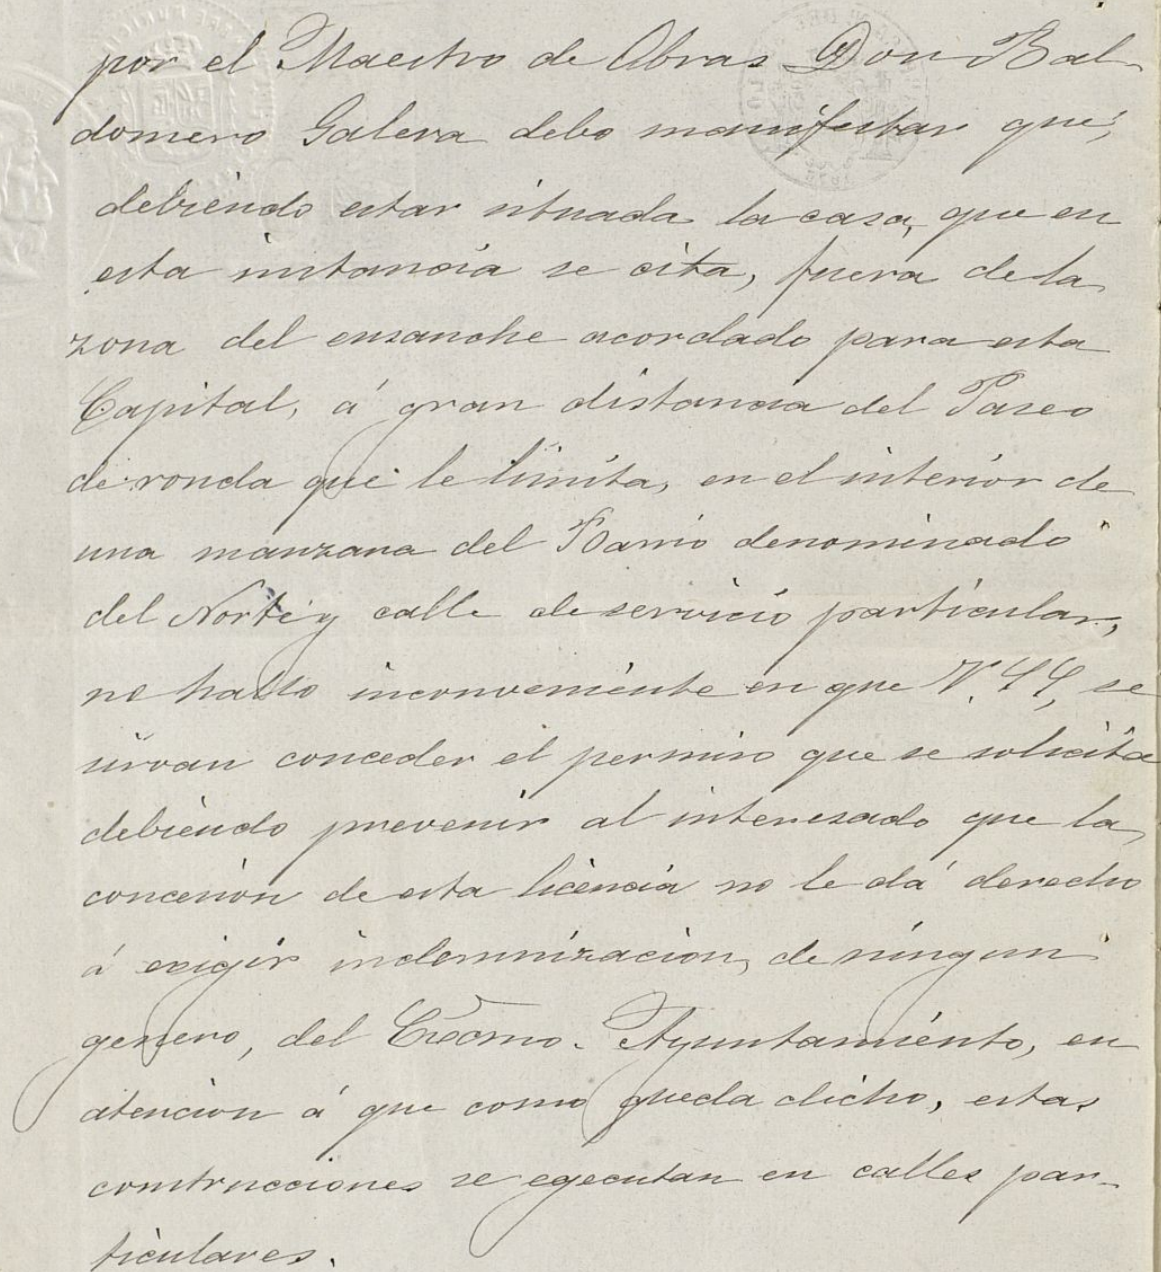 por el Maestro de Obras Don Bal-
domero Galera debo manifestar que,
debiendo estar situada la casa, que en
esta instancia se cita, fuera de la
zona del ensanche acordado para esta
Capital, á gran distancia del Paseo
de ronda que le limita, en el interior de
una manzana del Barrio denominado
del Norte y calle de servicio particular,
no hallo inconveniente en que V. SS, se
sirvan conceder el permiso que se solicita
debiendo prevenir al interesado que la
concesion de esta licencia no le dá derecho
á exigir indemnizacion, de ningun
genero, del Excmo. Ayuntamiento, en
atencion á que como queda dicho, estas
construcciones se egecutan en calles par-
ticulares.